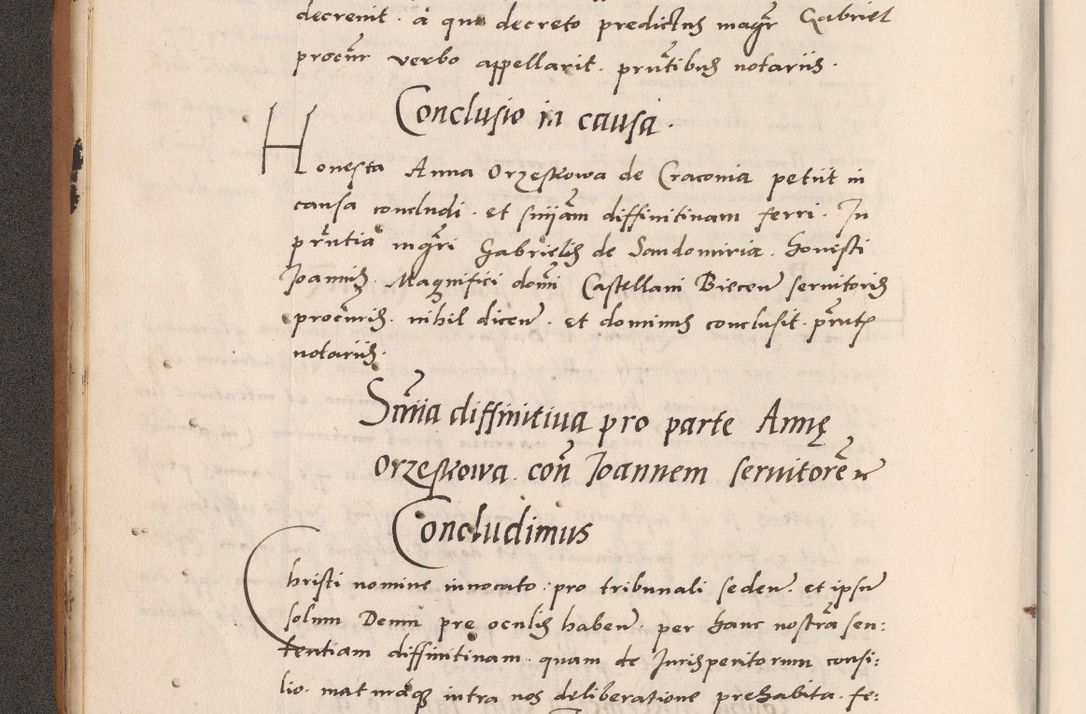 decrevit · a quo decreto predictus magr Gabriel
procur verbo appellavit · prntibus notariis ·
Conclusio in causa ·
Honesta Anna Orzeskowa de Cracovia petiit in
causa concludi · et sniam diffinitivam ferri · In
prntia mgri Gabrielis de Sandomiria · honesti
Joannis · Magnifici domi Castellani Biecen servitoris
procuris · nihil dicen · et dominus conclusit · prntes
notariis ·
Snia diffinitiva pro parte Annę
Orzeskowa con Joannem servitorem
Concludimus
Christi nomine invocato · pro tribunali seden · et ipsum
solum Deum pre oculis haben · per hanc nostra sen:
tentiam diffinitivam · quam de Jurisperitorum consi:
lio · maturaque intra nos deliberatione prehabita · fe: